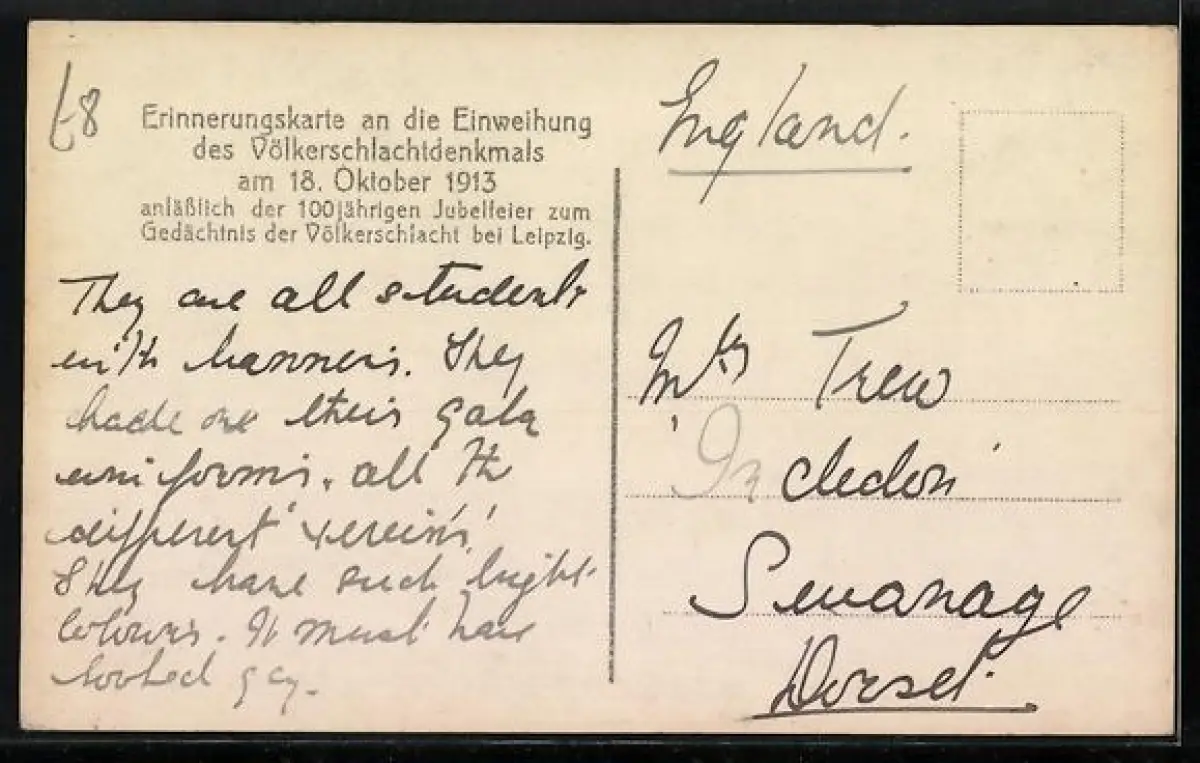 t8
Erinnerungskarte an die Einweihung
des Völkerschlachtdenkmals
am 18. Oktober 1913
anläßlich der 100jährigen Jubelfeier zum
Gedächtnis der Völkerschlacht bei Leipzig.
They are all students
with banners. They
had on their gala
uniforms. all the
different 'vereins'
They have such bright
colours. It must have
looked gay.
England.
Mrs Trew
Incledon
Swanage
Dorset.